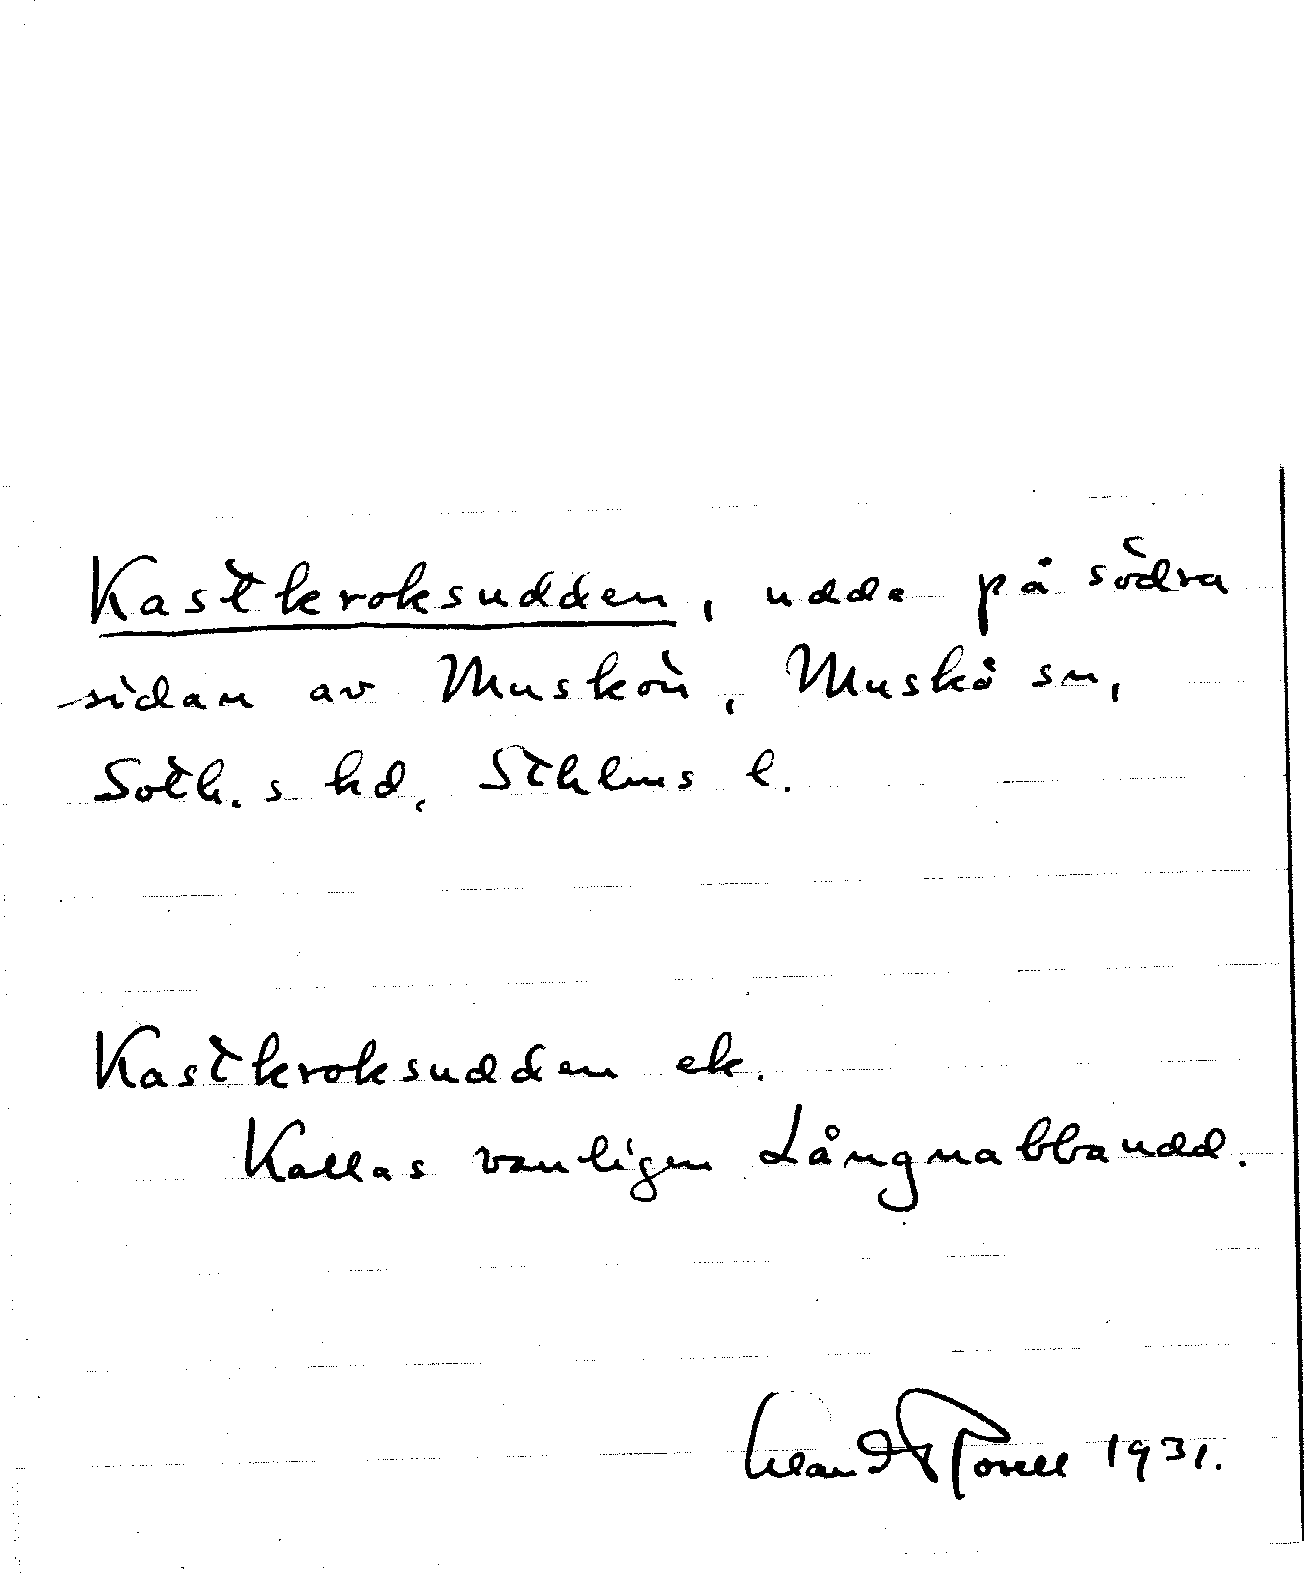 Kastkroksudden, udde på södra
sidan av Muskön, Muskö sn,
Soth.s hd, Sthlms l.
Kastkroksudden ek.
Kallas vanligen Långnabbaudd.
1931.